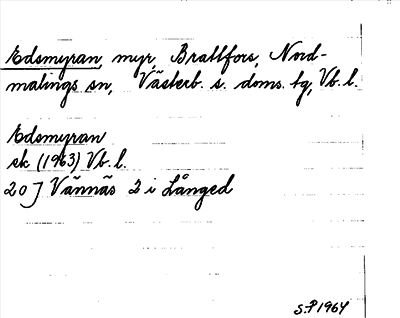 Edsmyran, myr, Brattfors, Nord-
malings sn, Västerb. s. doms. tg, Vb. l.
Edsmyran
ek (1963) Vb. l.
20 J Vännäs 3 i Långed
S.P 1964